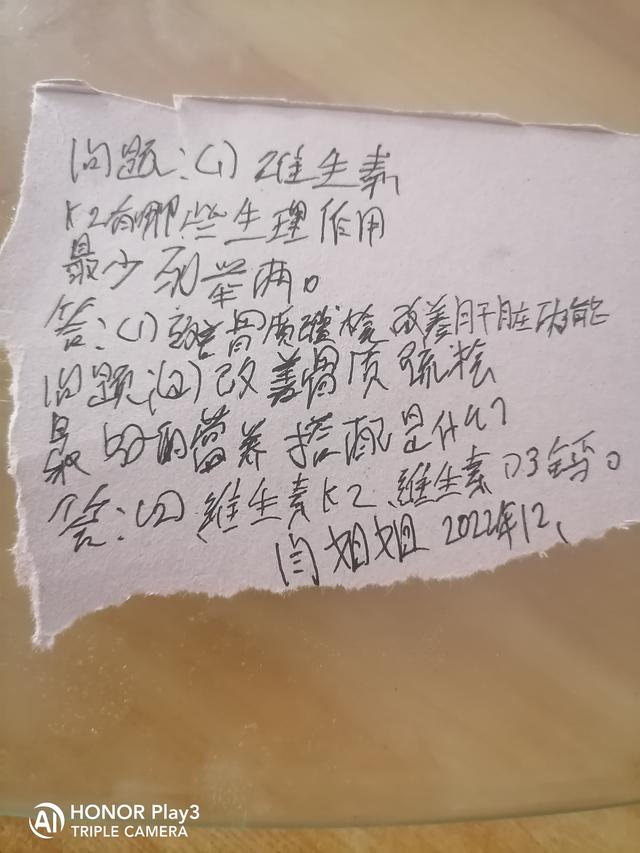 问题:(1)维生素
K2有哪些生理作用
最少列举两。
答:(1)骨质疏松 改善肝脏功能
问题:(2)改善骨质疏松
最好的营养搭配是什么?
答:(2)维生素K2 维生素D3钙。
闫姐姐 2022年12、
HONOR Play3
TRIPLE CAMERA